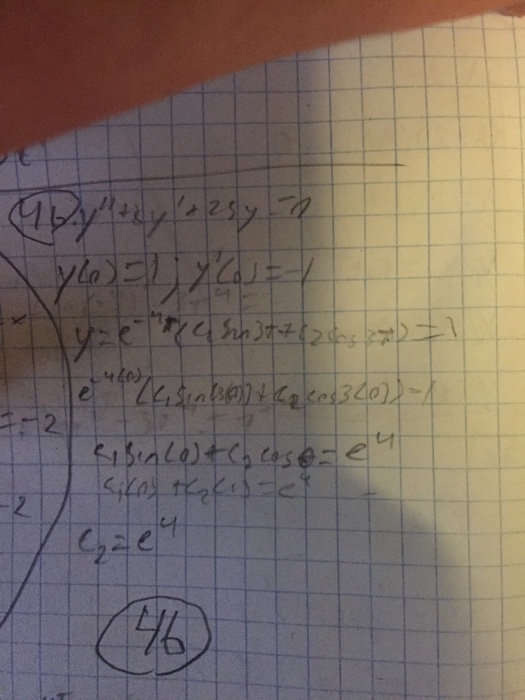 46. y"+8y'+25y=0
y(0)=1; y'(0)=-1
y=e^-4π(c₁sin3π+c₂cos3π)=1
e^-4(0)(c₁sin(3(0))+c₂cos3(0))=1
=-2
c₁sin(0)+c₂cos0=e^4
c₁(0)+c₂(1)=e^4
-2
c₂=e^4
46